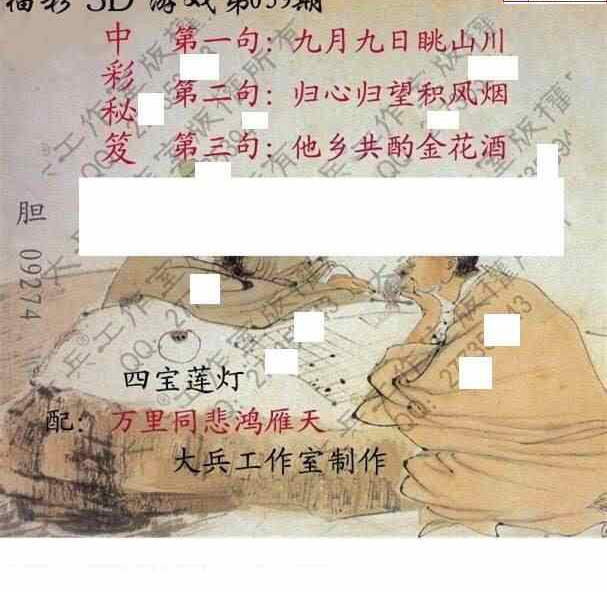 福彩3D 游戏第059期
中彩秘笈
第一句：九月九日眺山川
第二句：归心归望积风烟
第三句：他乡共酌金花酒
胆 09274
四宝莲灯
配：万里同悲鸿雁天
大兵工作室制作